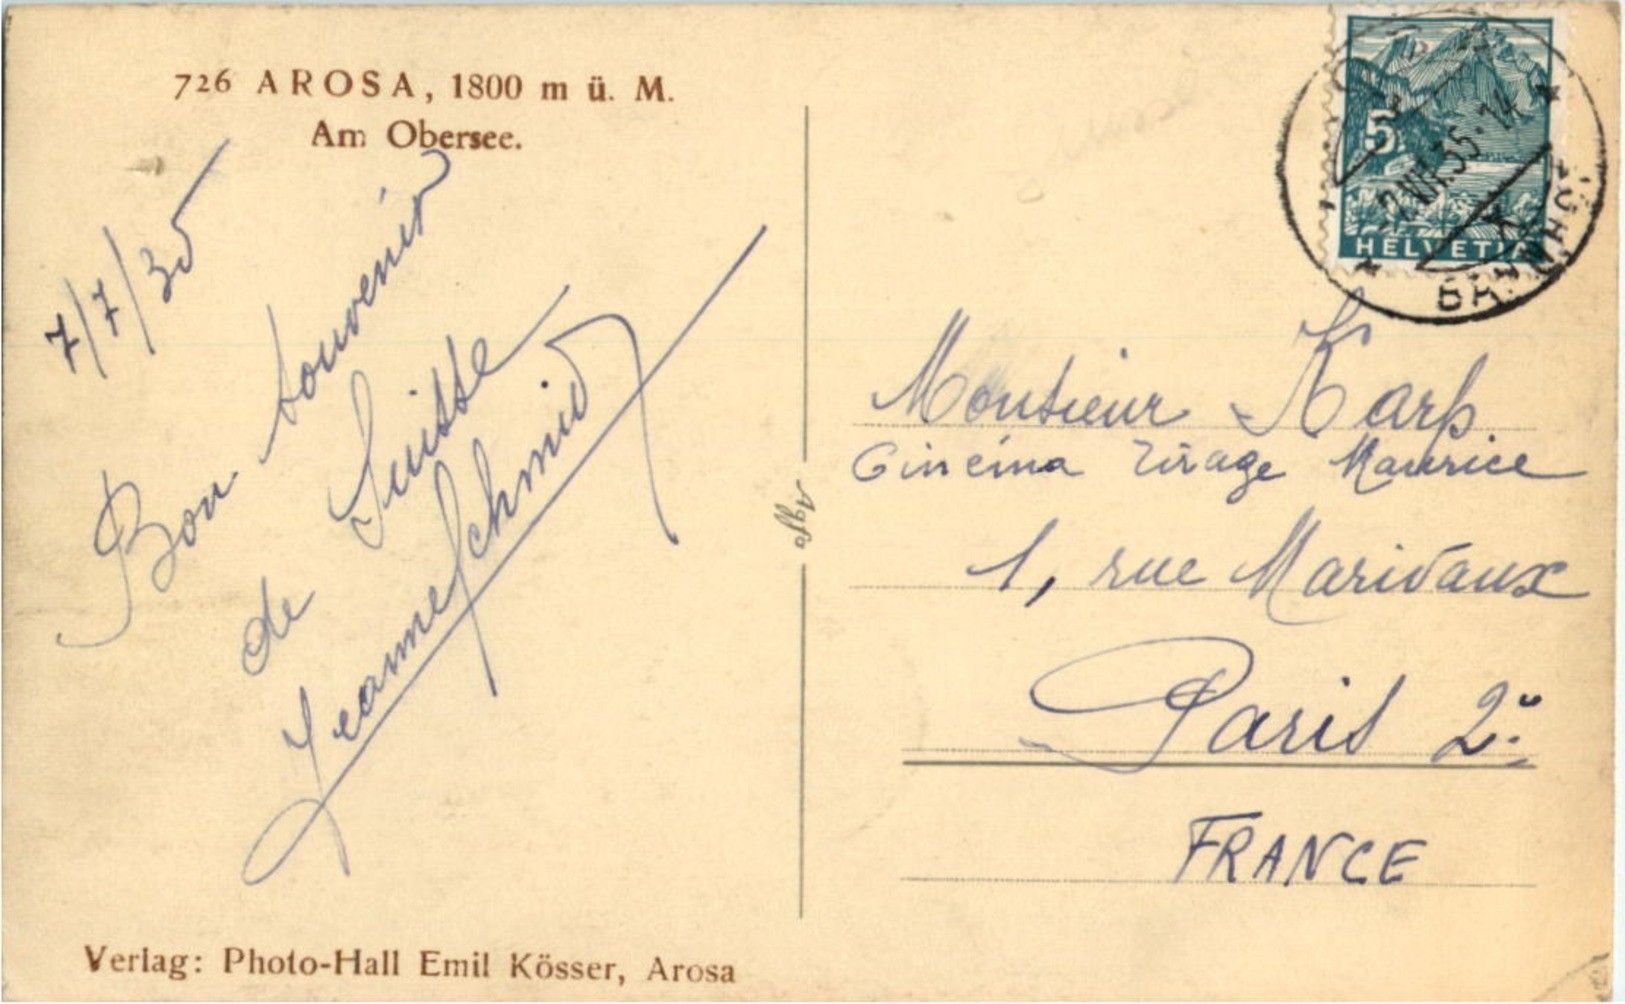 726 AROSA, 1800 m ü. M.
Am Obersee.
7/7/35
Bon souvenir
de Suisse
Jeanne Schmid
Verlag: Photo-Hall Emil Kösser, Arosa
Agfa
5
HELVETIA
VII.35-14
Monsieur Karp
Cinéma Tirage Maurice
1, rue Marivaux
Paris 2e
FRANCE